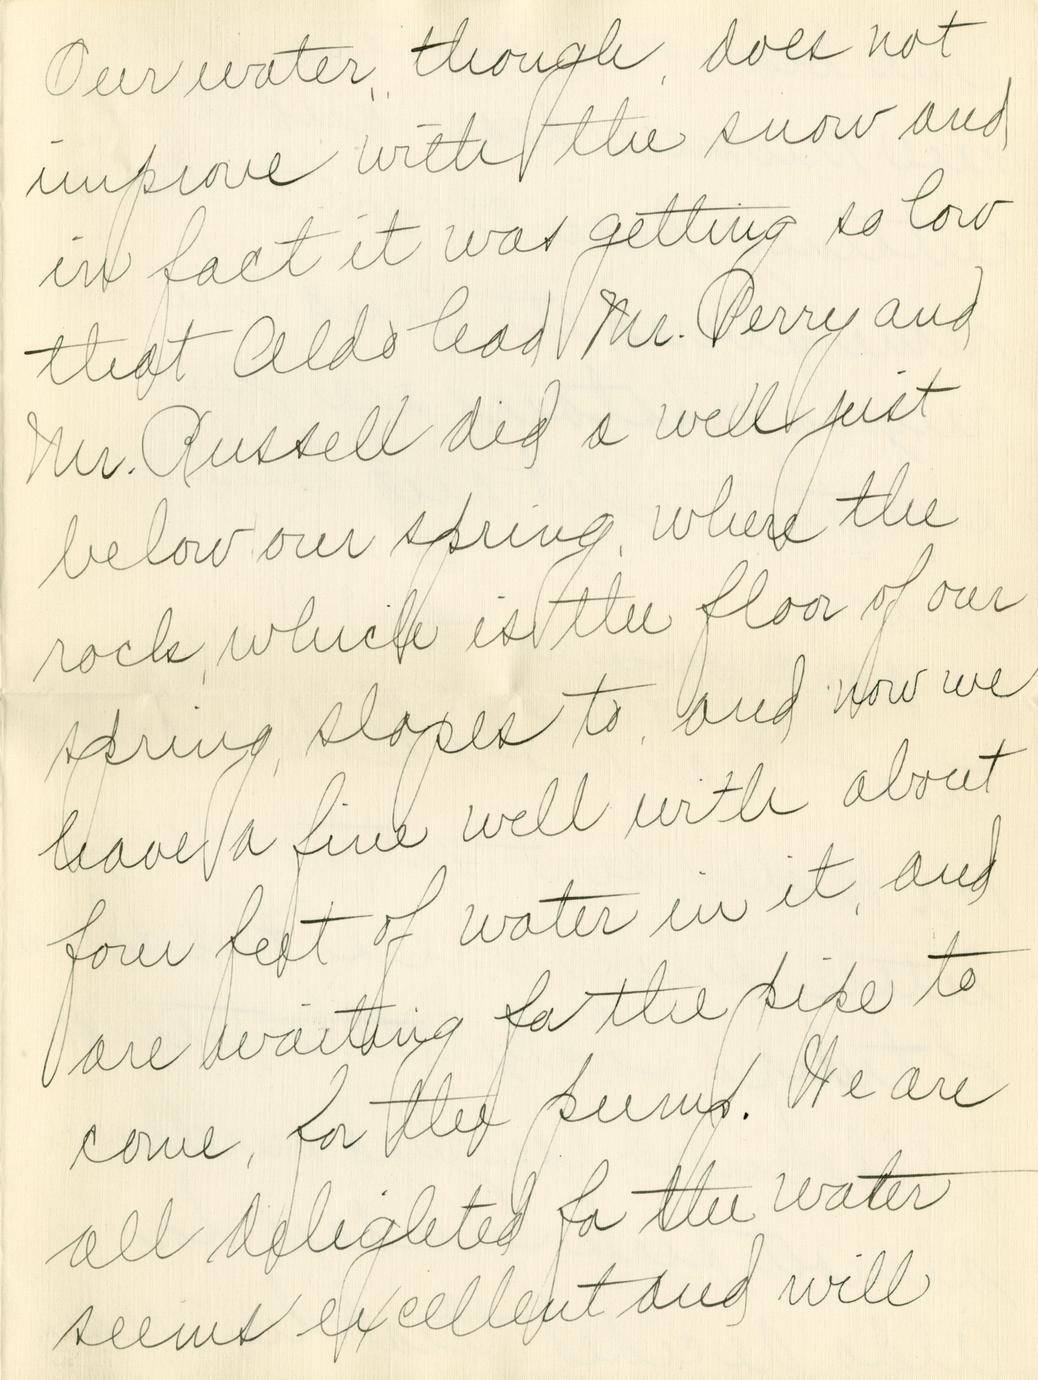 Our water, though, does not
improve with the snow and
in fact it was getting so low
that Aldo had Mr. Perry and
Mr. Russell did a well just
below our spring, where the
rock, which is the floor of our
spring, slopes to, and now we
have a fine well with about
four feet of water in it, and
are waiting for the pipe to
come, for the pump. We are
all delighted for the water
seems excellent and will